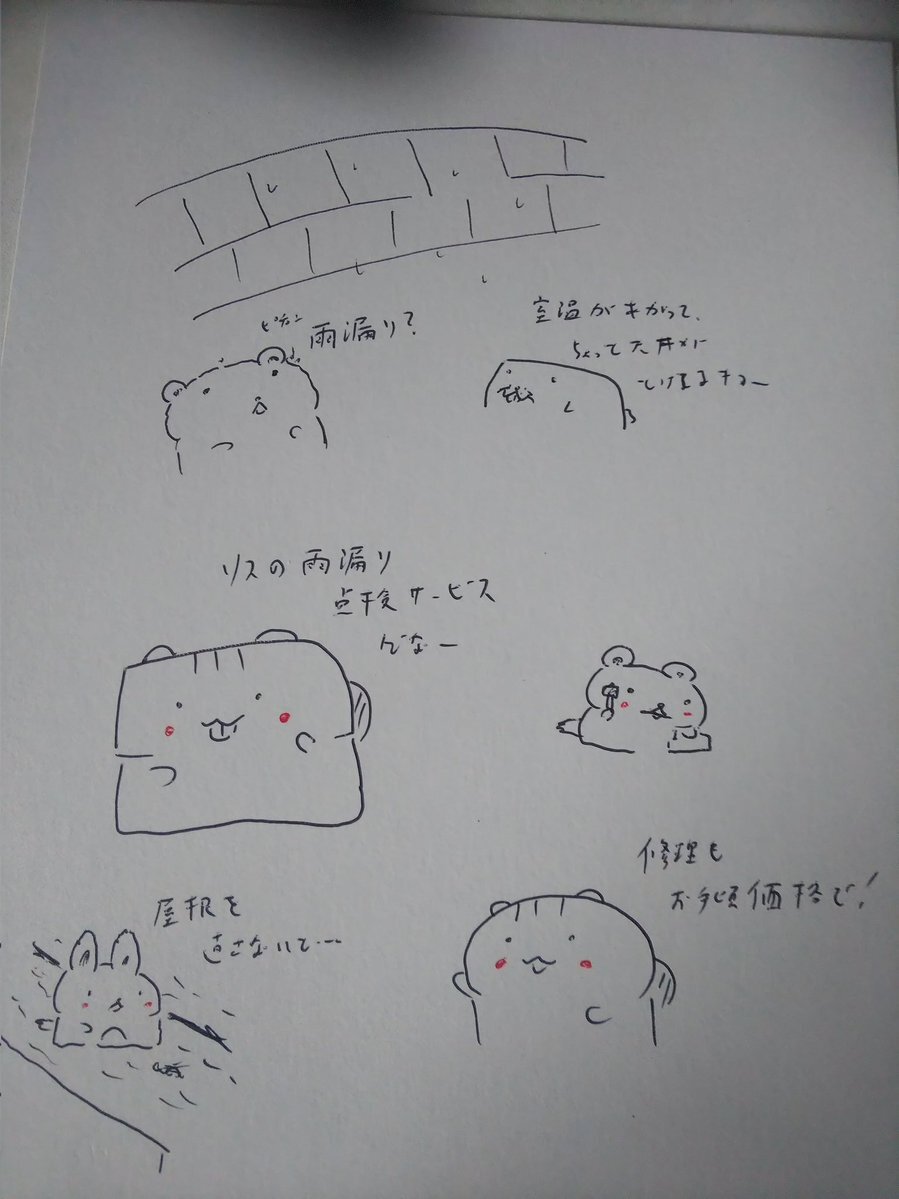 ピチョン
雨漏り?
室温があがって、
ちょっと天井が
とけてるチュー
リスの雨漏り
点検サービス
だなー
屋根を
直さないと…
修理も
お手頃価格で!